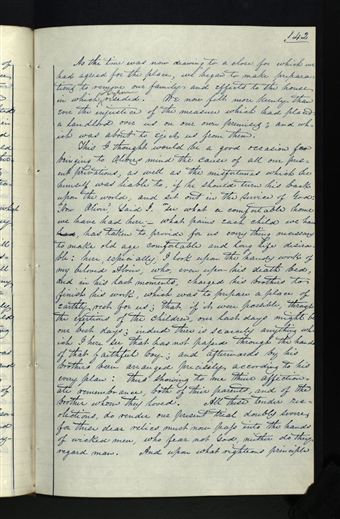 142
As the time was now drawing to a close for which we
had agreed for the place, we began to make prepara-
tions to remove our family and effects to the house
in which Ephraim resided. We now felt more keenly than
ever the injustice of the measure which had placed
a landlord over us on our own premises; and who
was about to eject us from them.
This I thought would be a good occasion for
bringing to Oliver's mind the cause of all our pres-
ent privations, as well as the misfortunes which he
himself was liable to, if he should turn his back
upon the world, and set out in the service of God.
Now, Oliver, said I. See what a comfortable home
we have had here — what pains each child we have
has taken to provide for us every thing necessary
to make old age comfortable and long life desira-
ble: here, especially, I look upon the handy work of
my beloved Alvin, who, even upon his death bed,
and in his last moments, charged his brothers to
finish his work, which was to prepare a place of
earthly rest for us; that if it were possible, through
the exertions of the children, our last days might be
our best days; indeed there is scarcely anything wh-
ich I here see that has not passed through the hands
of that faithful boy; and afterwards by his
brothers been arranged precisely according to his
every plan: thus showing to me their affection-
ate remembrance, both of their parents, and of the
brother whom they loved. All these tender rec-
ollections, do render our present trial doubly severe,
for these dear relics must now pass into the hands
of wicked men, who fear not God, neither do they
regard man. And upon what righteous principle